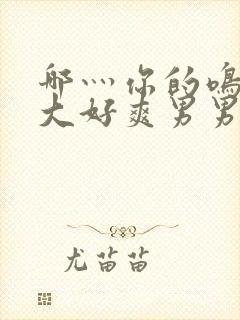 哪灬你的鸣
大好爽男男
尤苗苗